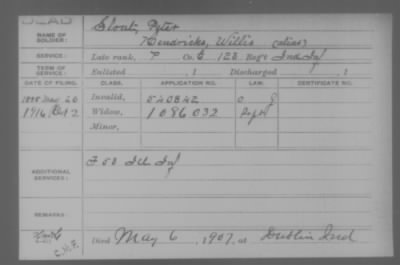 DEAD
NAME OF SOLDIER: Slout, Peter
Hendricks, Willis (alias)
SERVICE: Late rank, P Co. E, 122 Reg't Ind Inf
TERM OF SERVICE: Enlisted , 1 Discharged , 1
DATE OF FILING. CLASS. APPLICATION NO. LAW. CERTIFICATE NO.
Invalid, 540842
1916 Widow, 1086032
Minor,
ADDITIONAL SERVICES: F 58 Ill Inf
REMARKS:
Died May 6, 1907, at Dublin Ind